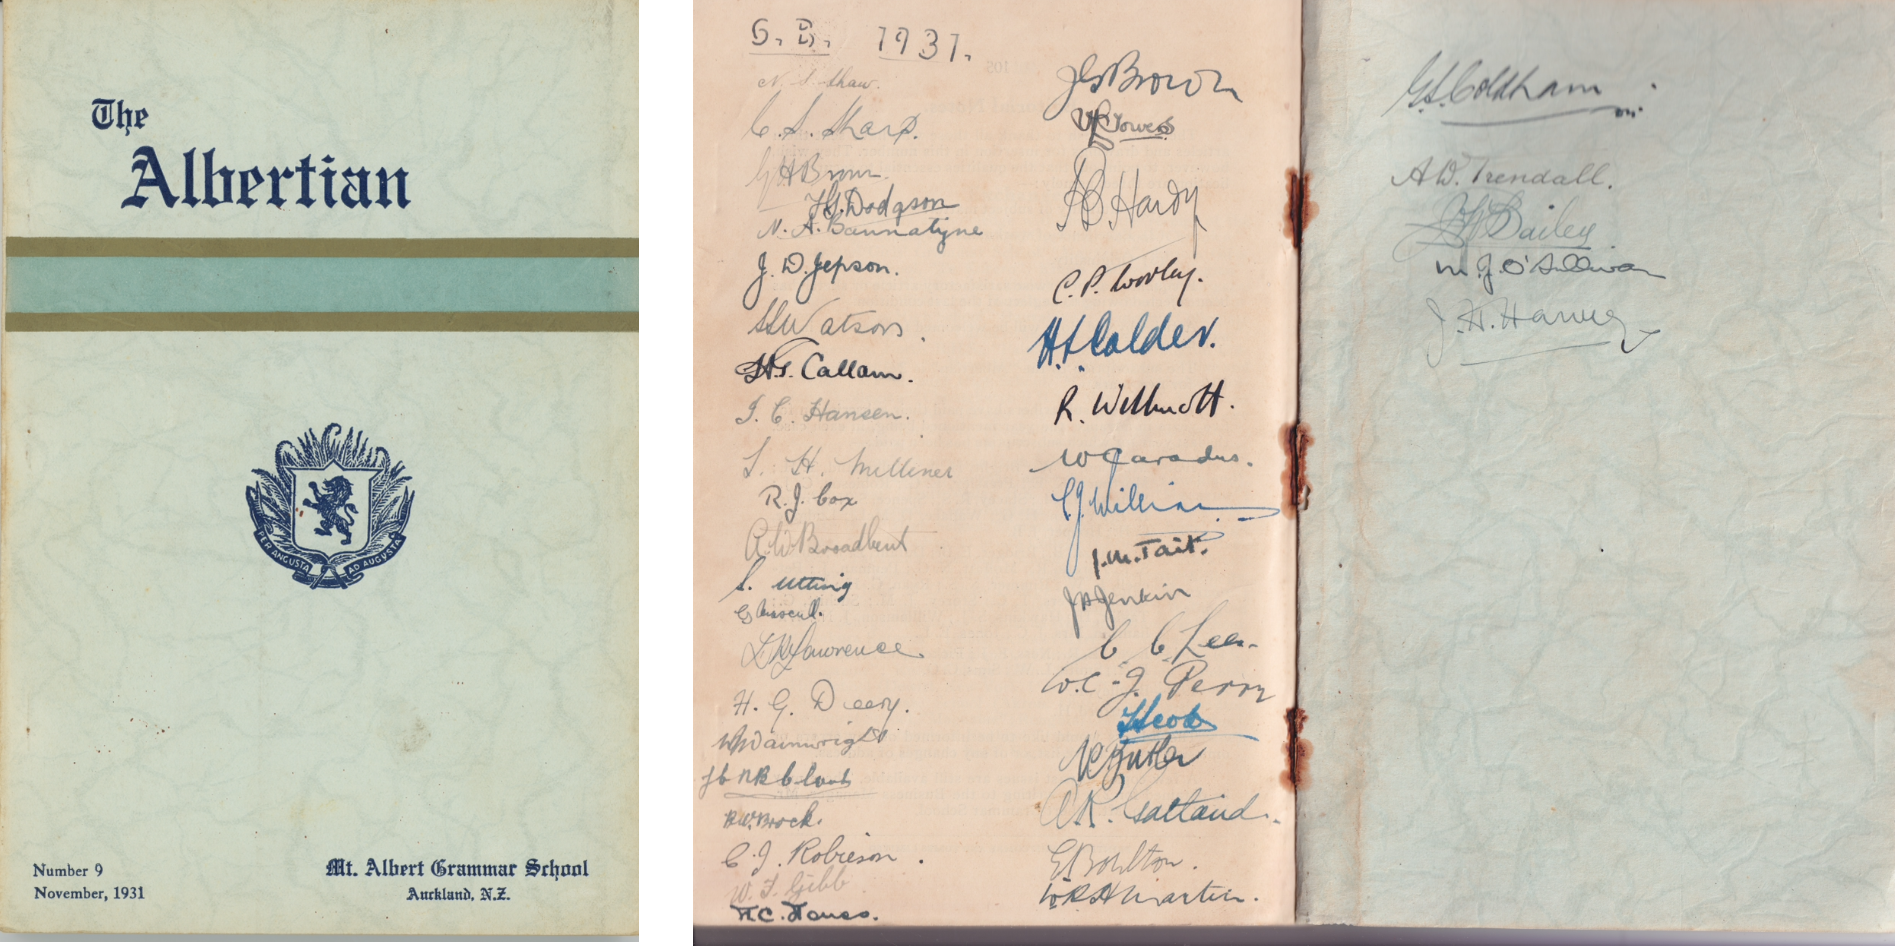 The
Albertian
PER ANGUSTA AD AUGUSTA
Number 9
November, 1931
Mt. Albert Grammar School
Auckland, N.Z.
5. B. 1931.
Shaw.
C. S. Sharp.
G H Brown.
F.G. Dodgson
N. A. Bannatyne
J. D. Jepson.
Watson.
H.S. Callam.
I. C. Hansen.
L. H. Millener
R. J. Cox
A. W. Broadbent
S. Utting
Lawrence
H. G. Deery.
Wainwright
R.W. Brock.
C. J. Robieson.
W. F. Gibb
H.C.
J G Brown
Towers
Hardy
C. P. Worley.
H. L. Calder.
R. Willmott.
W Caradus.
C. J. William
J. M. Tait.
J A Jenkin
C C Lees.
W. C. J. Perry
Butler
A. R. Gatland.
E Boulton.
W R H Martin.
G. S. Coldham
A W. Trendall.
Bailey
M. J. O'Sullivan
J. H. Harvey